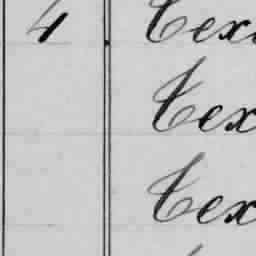 4 Tex
Tex
Tex